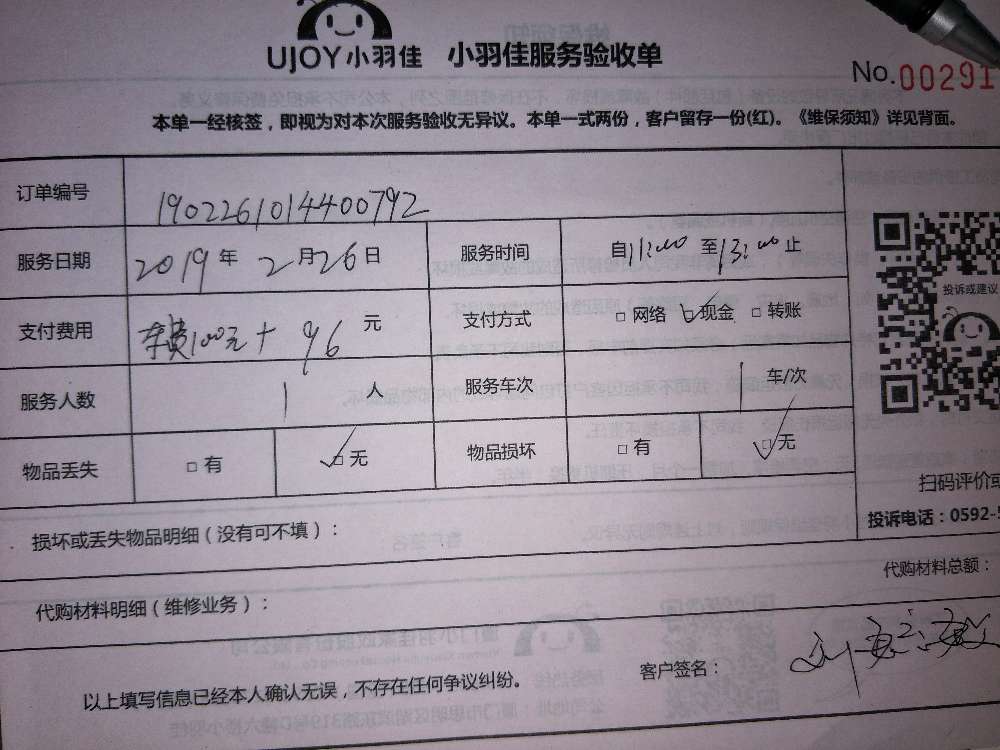 UJOY小羽佳 小羽佳服务验收单
No.00291
本单一经核签，即视为对本次服务验收无异议。本单一式两份，客户留存一份(红)。《维保须知》详见背面。
订单编号 1902261014400792
服务日期 2019年 2月26日 服务时间 自11:00 至13:00止
支付费用 车费100元+ 96 元 支付方式 □网络 ☑现金 □转账
投诉或建议
服务人数 1 人 服务车次 1 车/次
物品丢失 □有 ☑无 物品损坏 □有 ☑无
扫码评价或
投诉电话：0592-5
损坏或丢失物品明细（没有可不填）：
代购材料明细（维修业务）： 代购材料总额：
以上填写信息已经本人确认无误，不存在任何争议纠纷。 客户签名：